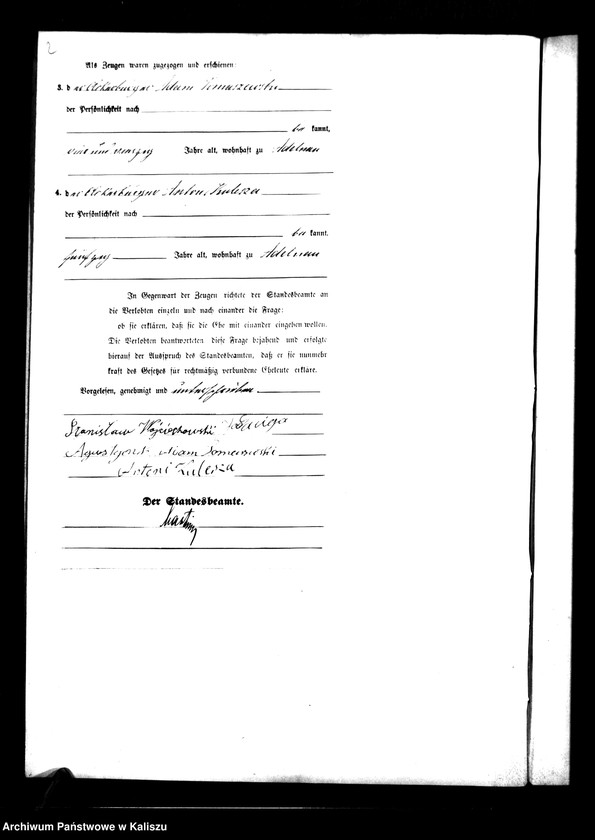 2
Als Zeugen waren zugezogen und erschienen:
3. der Ackerbürger Adam Tomaszewski
der Persönlichkeit nach
be kannt,
vierzig Jahre alt, wohnhaft zu Adelnau
4. der Ackerbürger Anton Kulesza
der Persönlichkeit nach
be kannt.
fünfzig Jahre alt, wohnhaft zu Adelnau
In Gegenwart der Zeugen richtete der Standesbeamte an
die Verlobten einzeln und nach einander die Frage:
ob sie erklären, daß sie die Ehe mit einander eingehen wollen.
Die Verlobten beantworteten diese Frage bejahend und erfolgte
hierauf der Ausspruch des Standesbeamten, daß er sie nunmehr
kraft des Gesetzes für rechtmäßig verbundene Eheleute erkläre.
Vorgelesen, genehmigt und unterschrieben
Stanisław Wojciechowski Jadwiga
Adam Tomaszewski
Antoni Kulesza
Der Standesbeamte.
Archiwum Państwowe w Kaliszu